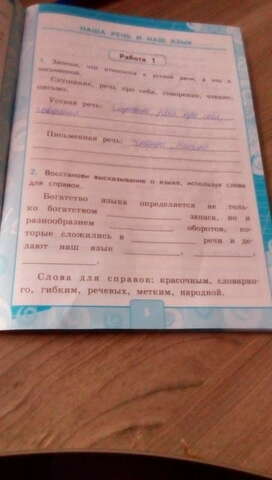 НАША РЕЧЬ И НАШ ЯЗЫК
Работа 1
1. Запиши, что относится к устной речи, а что к
письменной.
Слушание, речь про себя, говорение, чтение,
письмо.
Устная речь: слушание, речь про себя,
говорение
Письменная речь: чтение, письмо
2. Восстанови высказывание о языке, используя слова
для справок.
Богатство языка определяется не толь-
ко богатством запаса, но и
разнообразием оборотов, ко-
торые сложились в речи и де-
лают наш язык , ,
, .
Слова для справок: красочным, словарно-
го, гибким, речевых, метким, народной.